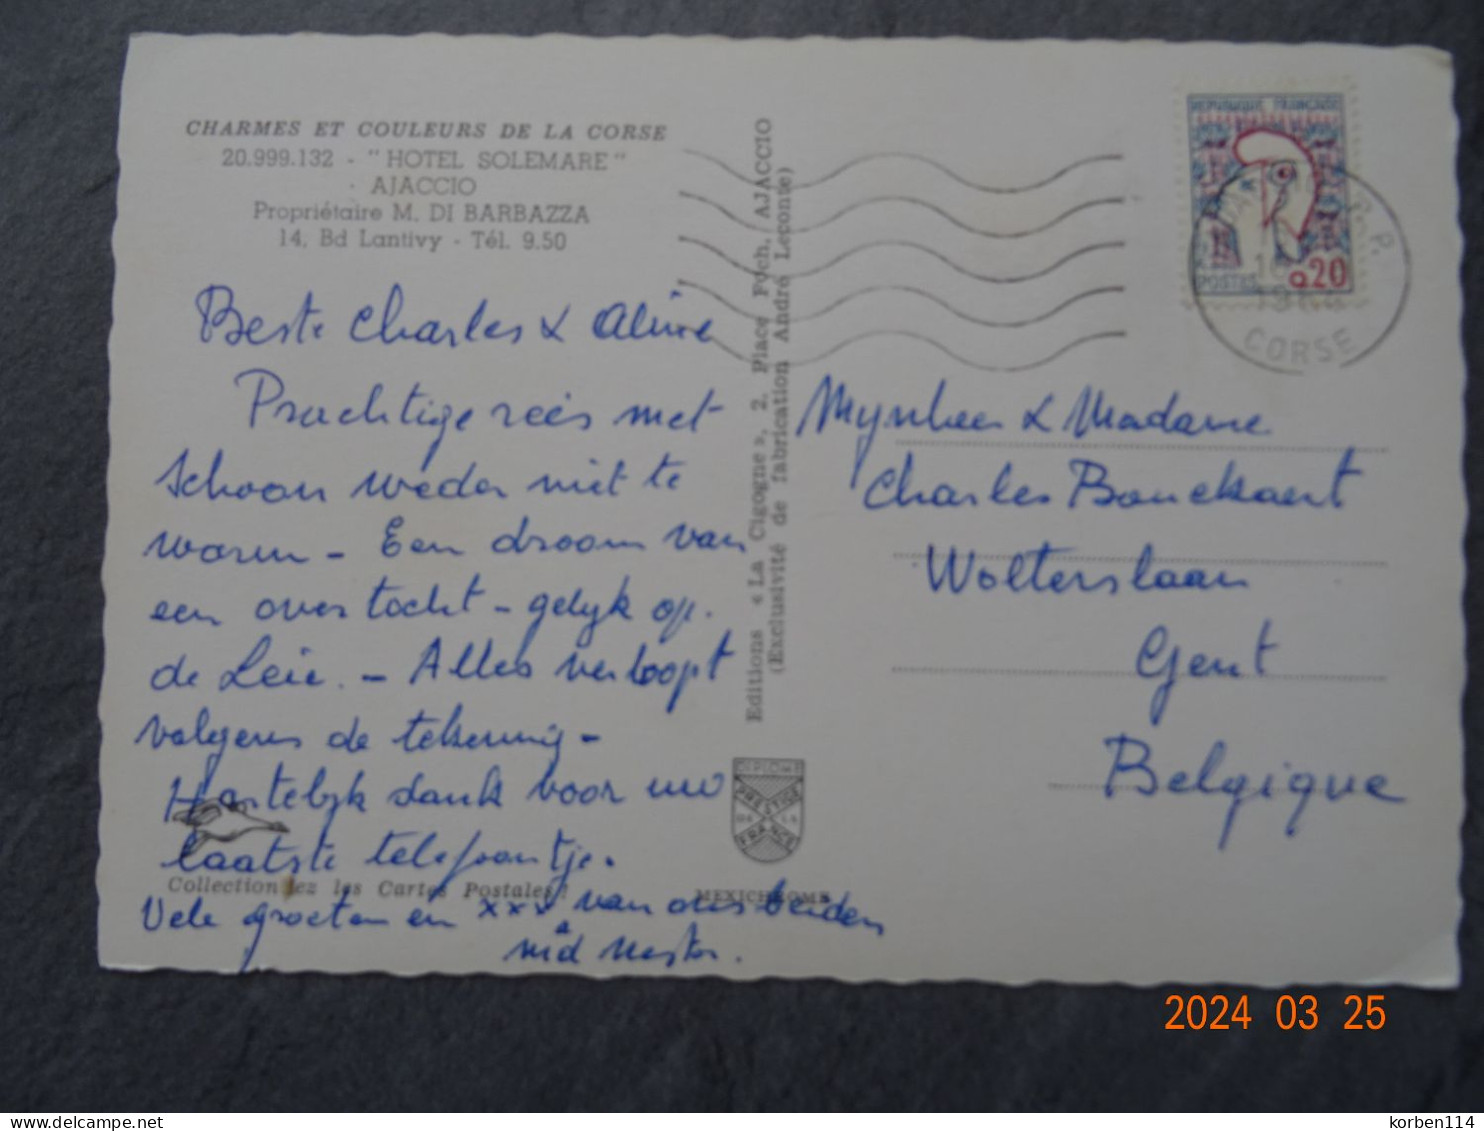 CHARMES ET COULEURS DE LA CORSE
20.999.132 - "HOTEL SOLEMARE"
AJACCIO
Propriétaire M. DI BARBAZZA
14, Bd Lantivy - Tél. 9.50
Beste Charles & Aline
Prachtige reis met
schoon weder niet te
warm - Een droom van
een overtocht - gelijk op
de Leie. - Alles verloopt
volgens de tekening -
Hartelijk dank voor uw
laatste telefoontje.
Collectionnez les Cartes Postales !
Vele groeten en xxx van ons beiden
Editions « La Cigogne », 2, Place Foch, AJACCIO
(Exclusivité de fabrication André Leconte)
DIPLOME
PRESTIGE
FRANCE
MEXICHROME
REPUBLIQUE FRANÇAISE
POSTES 0,20
R.P.
CORSE
Mynheer & Madame
Charles Bouckaert
Wolterslaan
Gent
Belgique
2024 03 25
delcampe.net
korben114